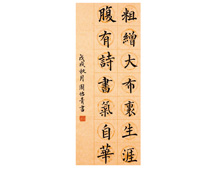 粗繒大布裏生涯
腹有詩書氣自華
戊戌秋月
書